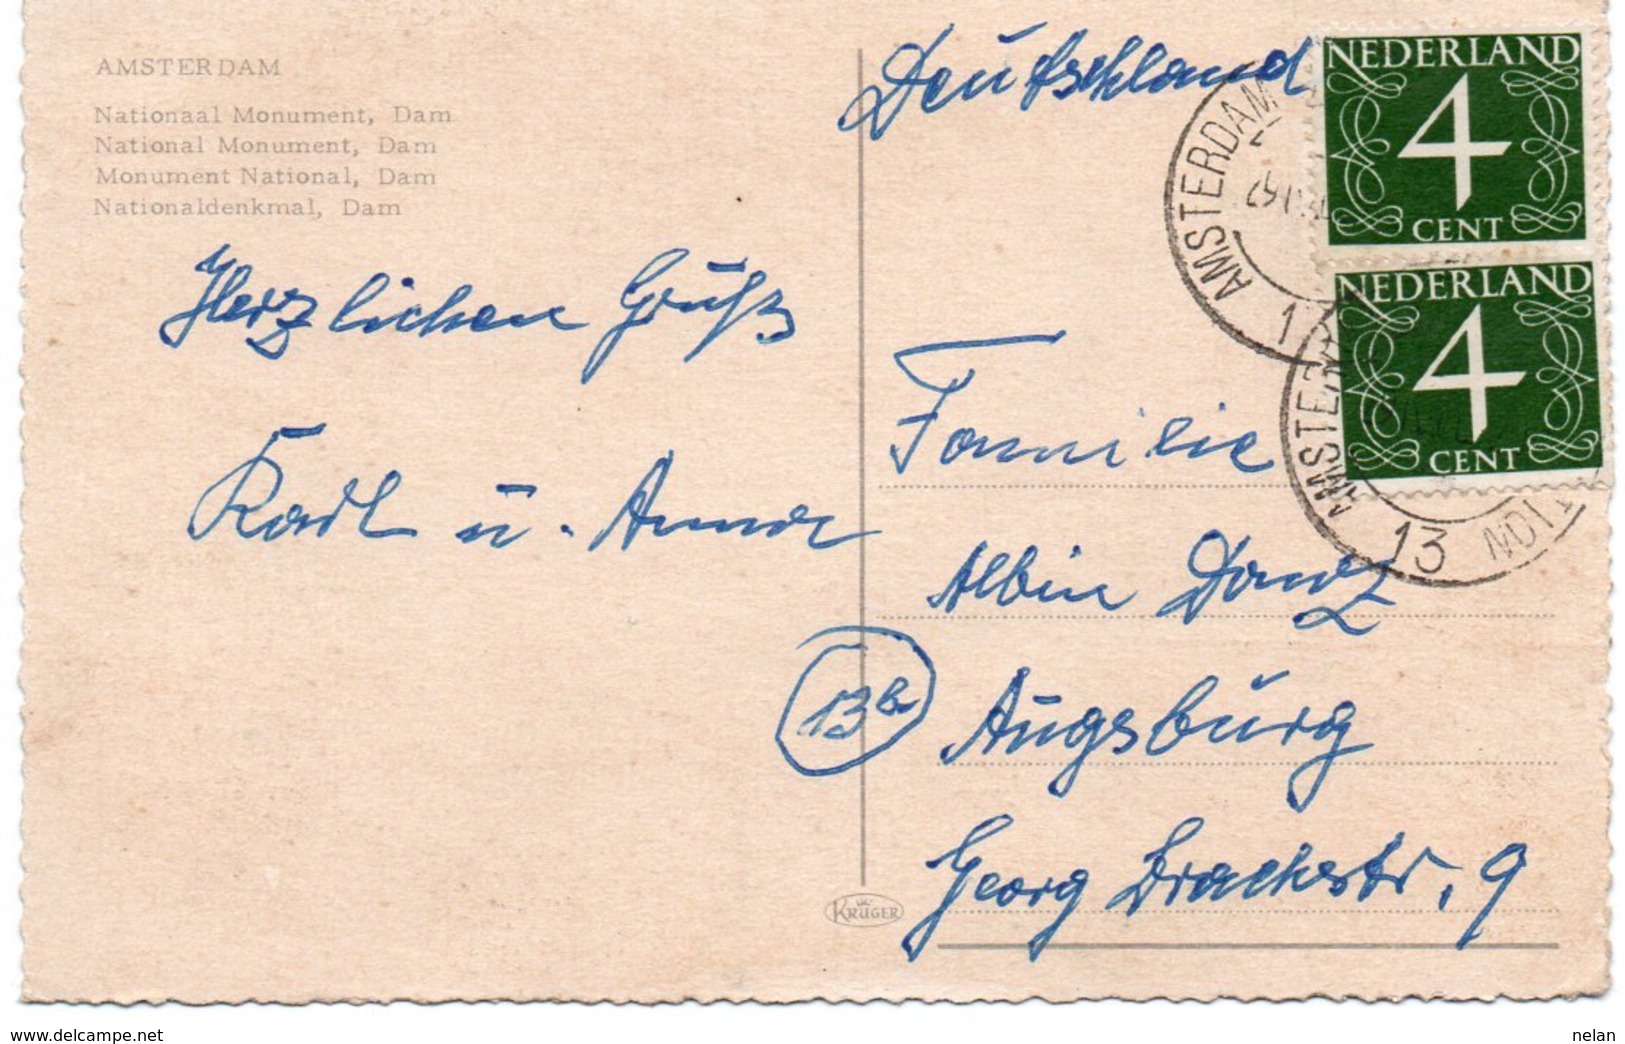 AMSTERDAM
Nationaal Monument, Dam
National Monument, Dam
Monument National, Dam
Nationaldenkmal, Dam
Herzlichen Gruß
Karl u. Anna
Deutschland
NEDERLAND
4
CENT
NEDERLAND
4
CENT
AMSTERDAM
13
AMSTER
13
Familie
Albin Danz
13b
Augsburg
Georg Brachstr. 9
KRÜGER
www.delcampe.net
nelan